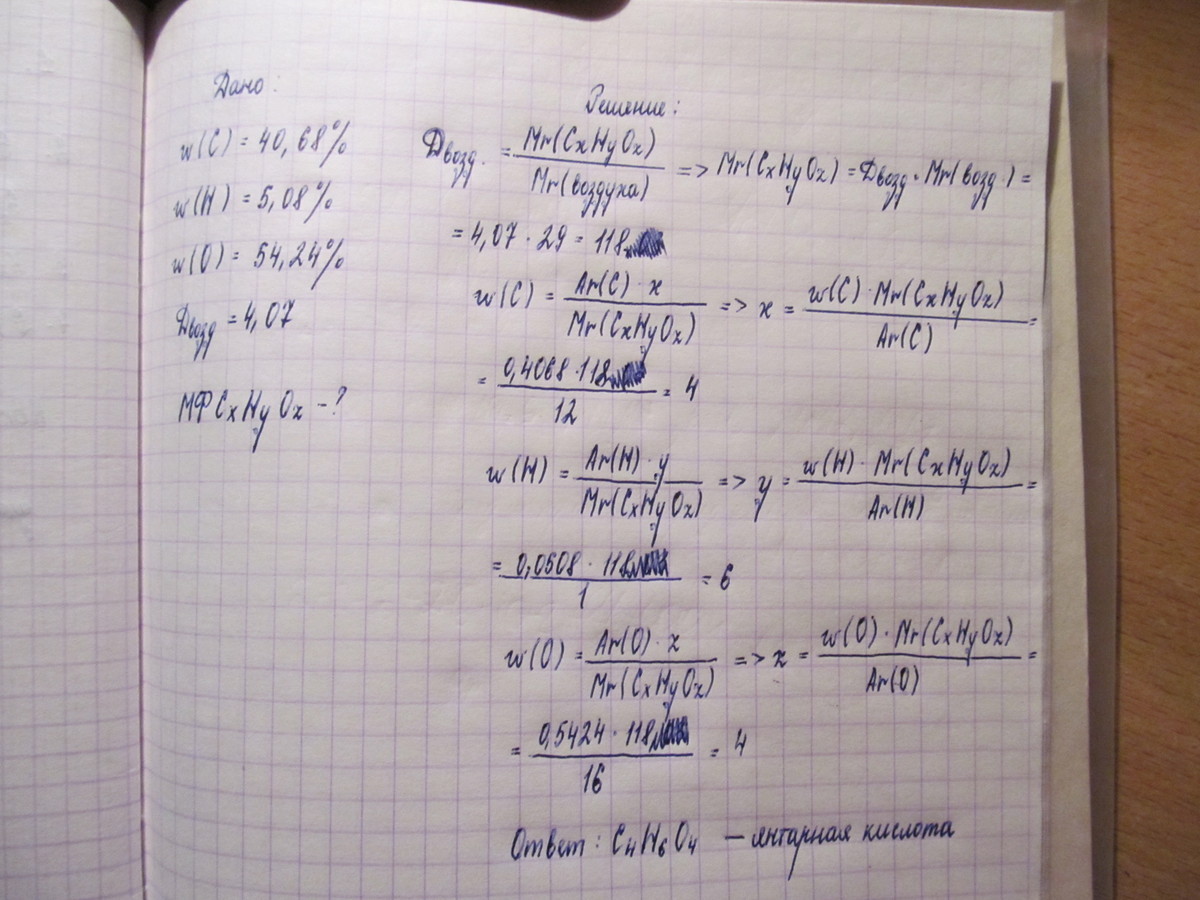 Дано:
w(C) = 40,68%
w(H) = 5,08%
w(O) = 54,24%
Двозд = 4,07
МФ CxHyOz - ?
Решение:
Двозд. = Mr(CxHyOz) / Mr(воздуха) => Mr(CxHyOz) = Двозд · Mr(возд.) =
= 4,07 · 29 = 118
w(C) = Ar(C) · x / Mr(CxHyOz) => x = w(C) · Mr(CxHyOz) / Ar(C) =
= 0,4068 · 118 / 12 = 4
w(H) = Ar(H) · y / Mr(CxHyOz) => y = w(H) · Mr(CxHyOz) / Ar(H) =
= 0,0508 · 118 / 1 = 6
w(O) = Ar(O) · z / Mr(CxHyOz) => z = w(O) · Mr(CxHyOz) / Ar(O) =
= 0,5424 · 118 / 16 = 4
Ответ: C4H6O4 — янтарная кислота